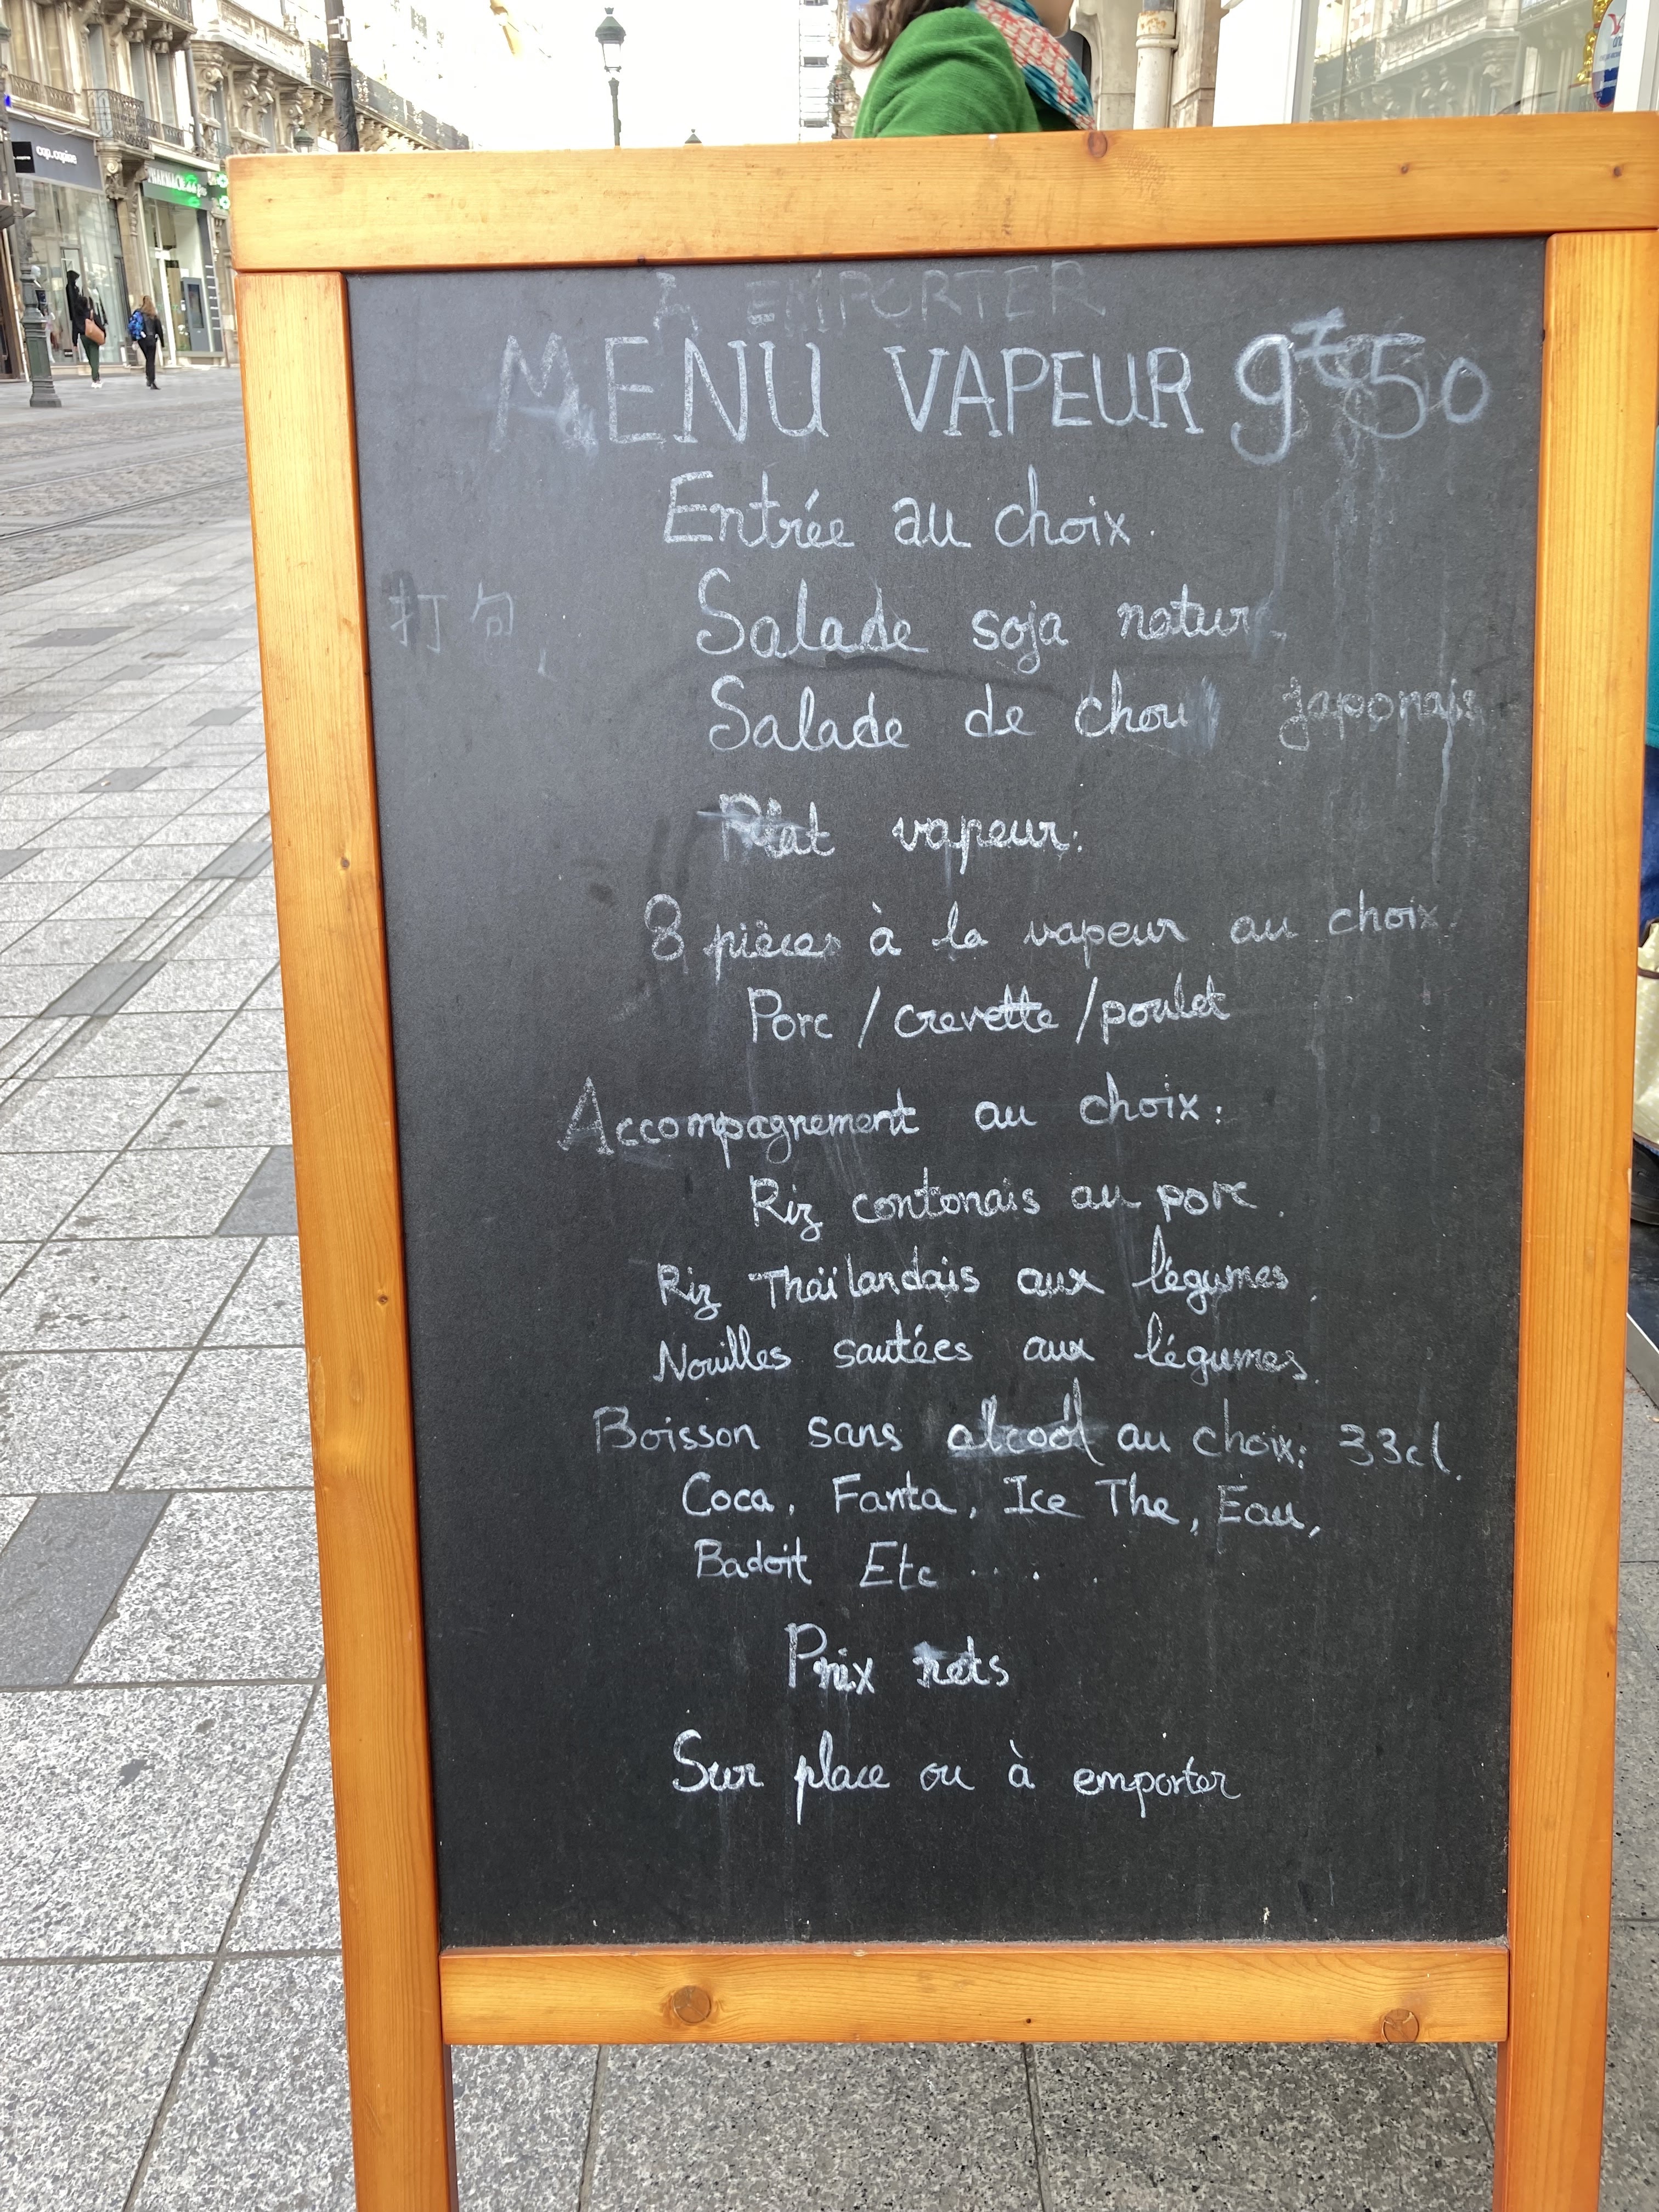 cop.copine
PHARMACIE
A EMPORTER
MENU VAPEUR 9€50
Entrée au choix.
打 句
Salade soja natur
Salade de chou japonais
Plat vapeur:
8 pièces à la vapeur au choix.
Porc / crevette / poulet
Accompagnement au choix:
Riz contonais au porc.
Riz Thaïlandais aux légumes.
Nouilles sautées aux légumes.
Boisson sans alcool au choix: 33cl.
Coca, Fanta, Ice The, Eau,
Badoit Etc....
Prix nets
Sur place ou à emporter